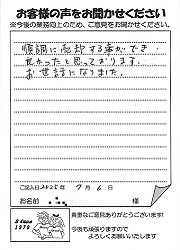 お客様の声をお聞かせください
※今後の業務向上のため、ご意見をお聞かせください
順調に売却する事ができ
良かったと思っております。
お世話になりました。
ご記入日2025年9月6日
お名前
様
Since
1976
貴重なご意見ありがとうございます!
今後も頑張りますので
よろしくお願いいたします